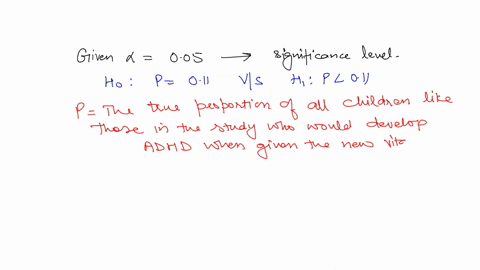 Given α = 0.05 → significance level.
H₀ : P = 0.11 V|S H₁ : P < 0.11
P = The true proportion of all children like
those in the study who would develop
ADHD when given the new vita